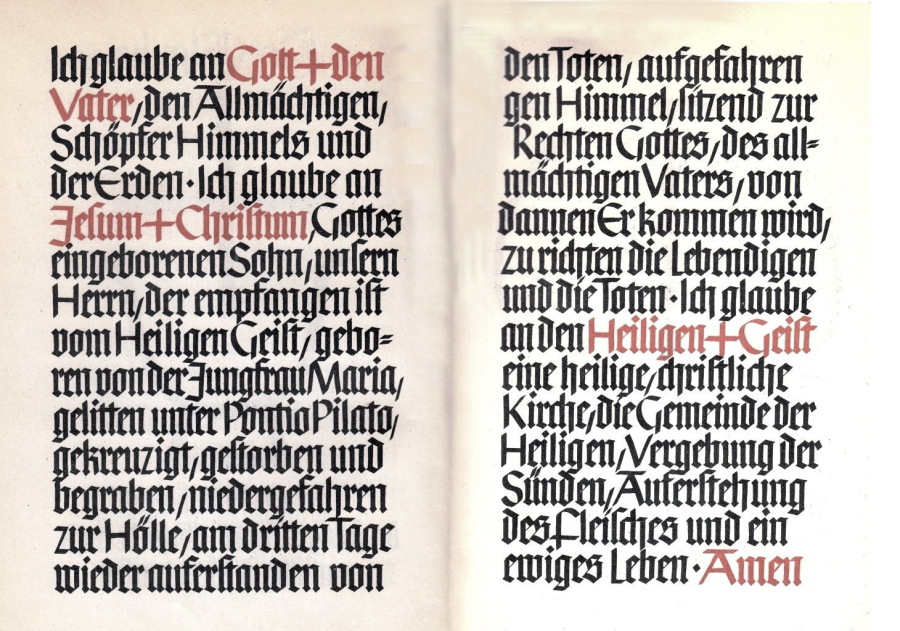 Ich glaube an Gott + den
Vater, den Allmächtigen,
Schöpfer Himmels und
der Erden · Ich glaube an
Jesum + Christum, Gottes
eingeborenen Sohn, unsern
Herrn, der empfangen ist
vom Heiligen Geist, gebo=
ren von der Jungfrau Maria,
gelitten unter Pontio Pilato,
gekreuzigt, gestorben und
begraben, niedergefahren
zur Hölle, am dritten Tage
wieder auferstanden von
den Toten, aufgefahren
gen Himmel, sitzend zur
Rechten Gottes, des all=
mächtigen Vaters, von
dannen Er kommen wird,
zu richten die Lebendigen
und die Toten · Ich glaube
an den Heiligen + Geist
eine heilige, christliche
Kirche, die Gemeinde der
Heiligen, Vergebung der
Sünden, Auferstehung
des Fleisches und ein
ewiges Leben · Amen